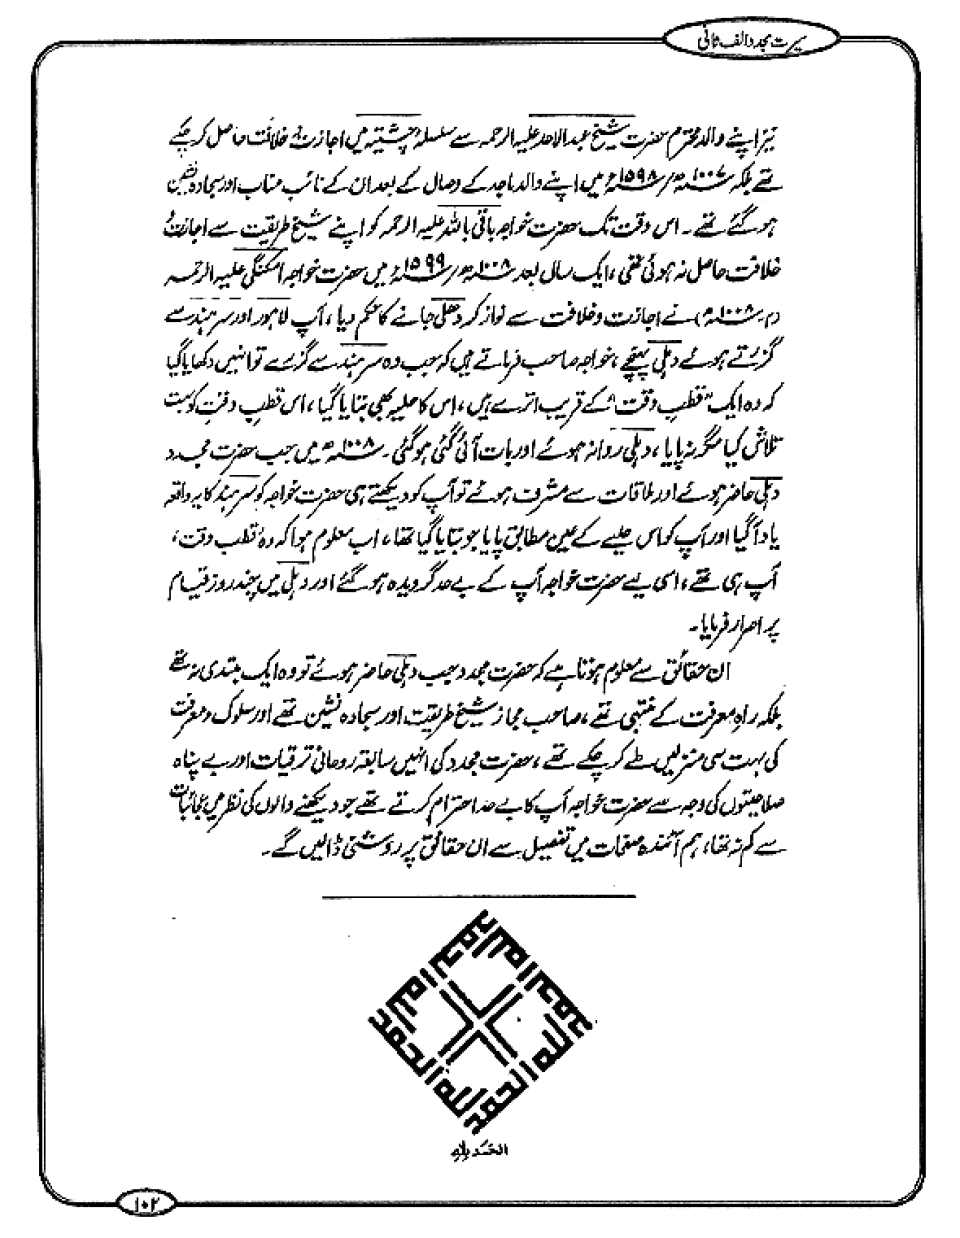 سیرت مجدد الف ثانی
نیز اپنے والد محترم حضرت شیخ عبدالاحد علیہ الرحمہ سے سلسلہ چشتیہ میں اجازت و خلافت حاصل کر چکے
تھے بلکہ ۱۰۰۷ھ/۱۵۹۸ء میں اپنے والد ماجد کے وصال کے بعد ان کے نائب مناب اور سجادہ نشین
ہو گئے تھے۔ اس وقت تک حضرت خواجہ باقی باللہ علیہ الرحمہ کو اپنے شیخ طریقت سے اجازت و
خلافت حاصل نہ ہوئی تھی، ایک سال بعد ۱۰۰۸ھ/۱۵۹۹ء میں حضرت خواجہ امکنگی علیہ الرحمہ
(م۔ ۱۰۰۸ھ) نے اجازت و خلافت سے نواز کر دہلی جانے کا حکم دیا، آپ لاہور اور سرہند سے
گزرتے ہوئے دہلی پہنچے، خواجہ صاحب فرماتے ہیں کہ جب وہ سرہند سے گزرے تو انہیں دکھایا گیا
کہ وہ ایک "قطبِ وقت" کے قریب اترے ہیں، اس کا حلیہ بھی بتایا گیا، اس قطبِ وقت کو بہت
تلاش کیا مگر نہ پایا، دہلی روانہ ہوئے اور بات آئی گئی ہو گئی۔ ۱۰۰۸ھ میں جب حضرت مجدد
دہلی حاضر ہوئے اور ملاقات سے مشرف ہوئے تو آپ کو دیکھتے ہی حضرت خواجہ کو سرہند کا یہ واقعہ
یاد آ گیا اور آپ کو اس حلیے کے عین مطابق پایا جو بتایا گیا تھا، اب معلوم ہوا کہ وہ قطب وقت،
آپ ہی تھے، اسی لیے حضرت خواجہ آپ کے بے حد گرویدہ ہو گئے اور دہلی میں چند روز قیام
پر اصرار فرمایا۔
ان حقائق سے معلوم ہوتا ہے کہ حضرت مجدد جب دہلی حاضر ہوئے تو وہ ایک مبتدی نہ تھے
بلکہ راہِ معرفت کے منتہی تھے، صاحب مجاز شیخ طریقت اور سجادہ نشین تھے اور سلوک و معرفت
کی بہت سی منزلیں طے کر چکے تھے، حضرت مجدد کی انہیں سابقہ روحانی ترقیات اور بے پناہ
صلاحیتوں کی وجہ سے حضرت خواجہ آپ کا بے حد احترام کرتے تھے جو دیکھنے والوں کی نظر میں عجائبات
سے کم نہ تھا، ہم آئندہ صفحات میں تفصیل سے ان حقائق پر روشنی ڈالیں گے۔
الحمد للہ
۱۰۲